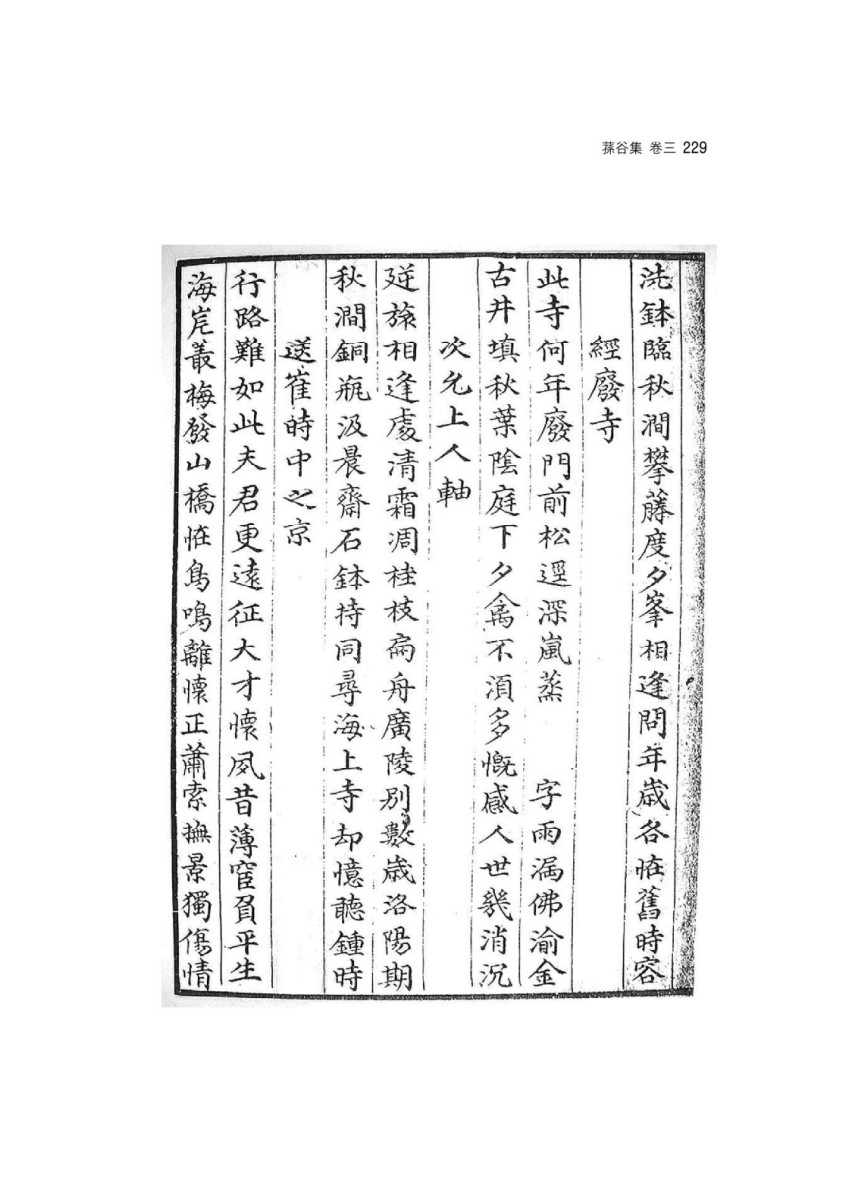 蓀谷集 卷三 229
洗鉢臨秋澗攀藤度夕峯相逢問年歲各恠舊時容
經廢寺
此寺何年廢門前松逕深嵐蒸 字雨漏佛渝金
古井塡秋葉陰庭下夕禽不湏多慨感人世幾消沉
次允上人軸
逆旅相逢處清霜凋桂枝扁舟廣陵別數歲洛陽期
秋澗銅瓶汲晨齋石鉢持同尋海上寺却憶聽鍾時
送崔時中之京
行路難如此夫君更遠征大才懷夙昔薄宦負平生
海岸叢梅發山橋恠鳥鳴離懷正蕭索撫景獨傷情